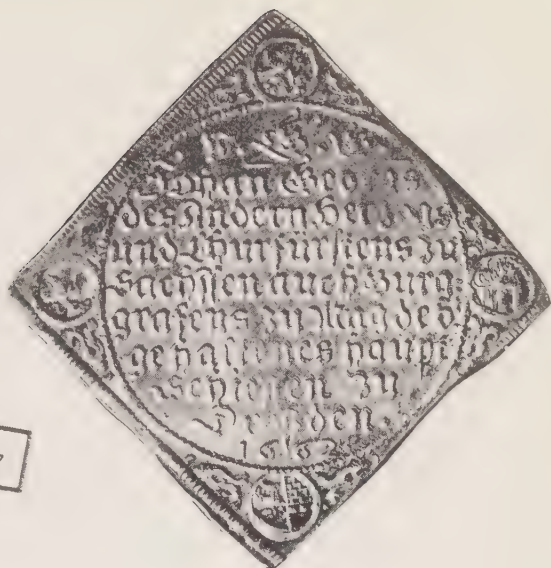 Johan Georgs
des Andern Herzogs
und Churfürstens zu
Sachssen auch Burg
grafens zu Magdeb
gehaltenes haupt
schiessen zu
Dresden